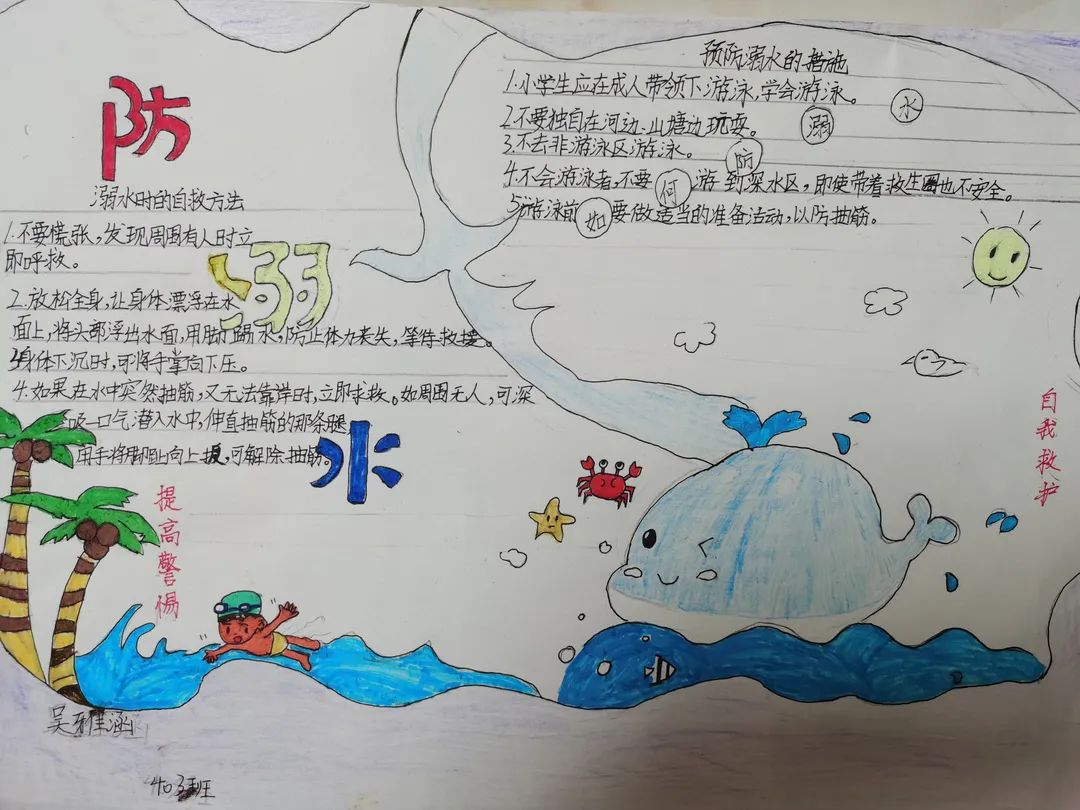 防
溺
水
溺水时的自救方法
1.不要慌张，发现周围有人时立
即呼救。
2.放松全身，让身体漂浮在水
面上，将头部浮出水面，用脚踢水，防止体力丧失，等待救援。
3.身体下沉时，可将手掌向下压。
4.如果在水中突然抽筋，又无法靠岸时，立即求救。如周围无人，可深
吸一口气潜入水中，伸直抽筋的那条腿
用手将脚趾向上扳，可解除抽筋。
提高警惕
预防溺水的措施
1.小学生应在成人带领下游泳，学会游泳。
2.不要独自在河边、山塘边玩耍。
3.不去非游泳区游泳。
4.不会游泳者，不要游到深水区，即使带着救生圈也不安全。
5.游泳前要做适当的准备活动，以防抽筋。
如
何
防
溺
水
自我救护
吴雅涵
403班